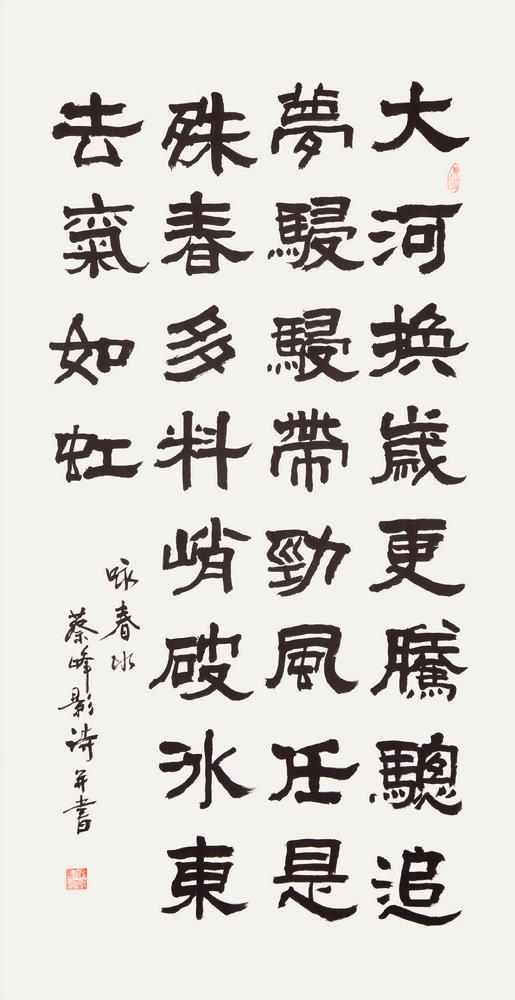 大河換歲更騰驄追
夢駸駸帶勁風任是
殊春多料峭破冰東
去氣如虹
咏春冰
蔡峰影诗并書